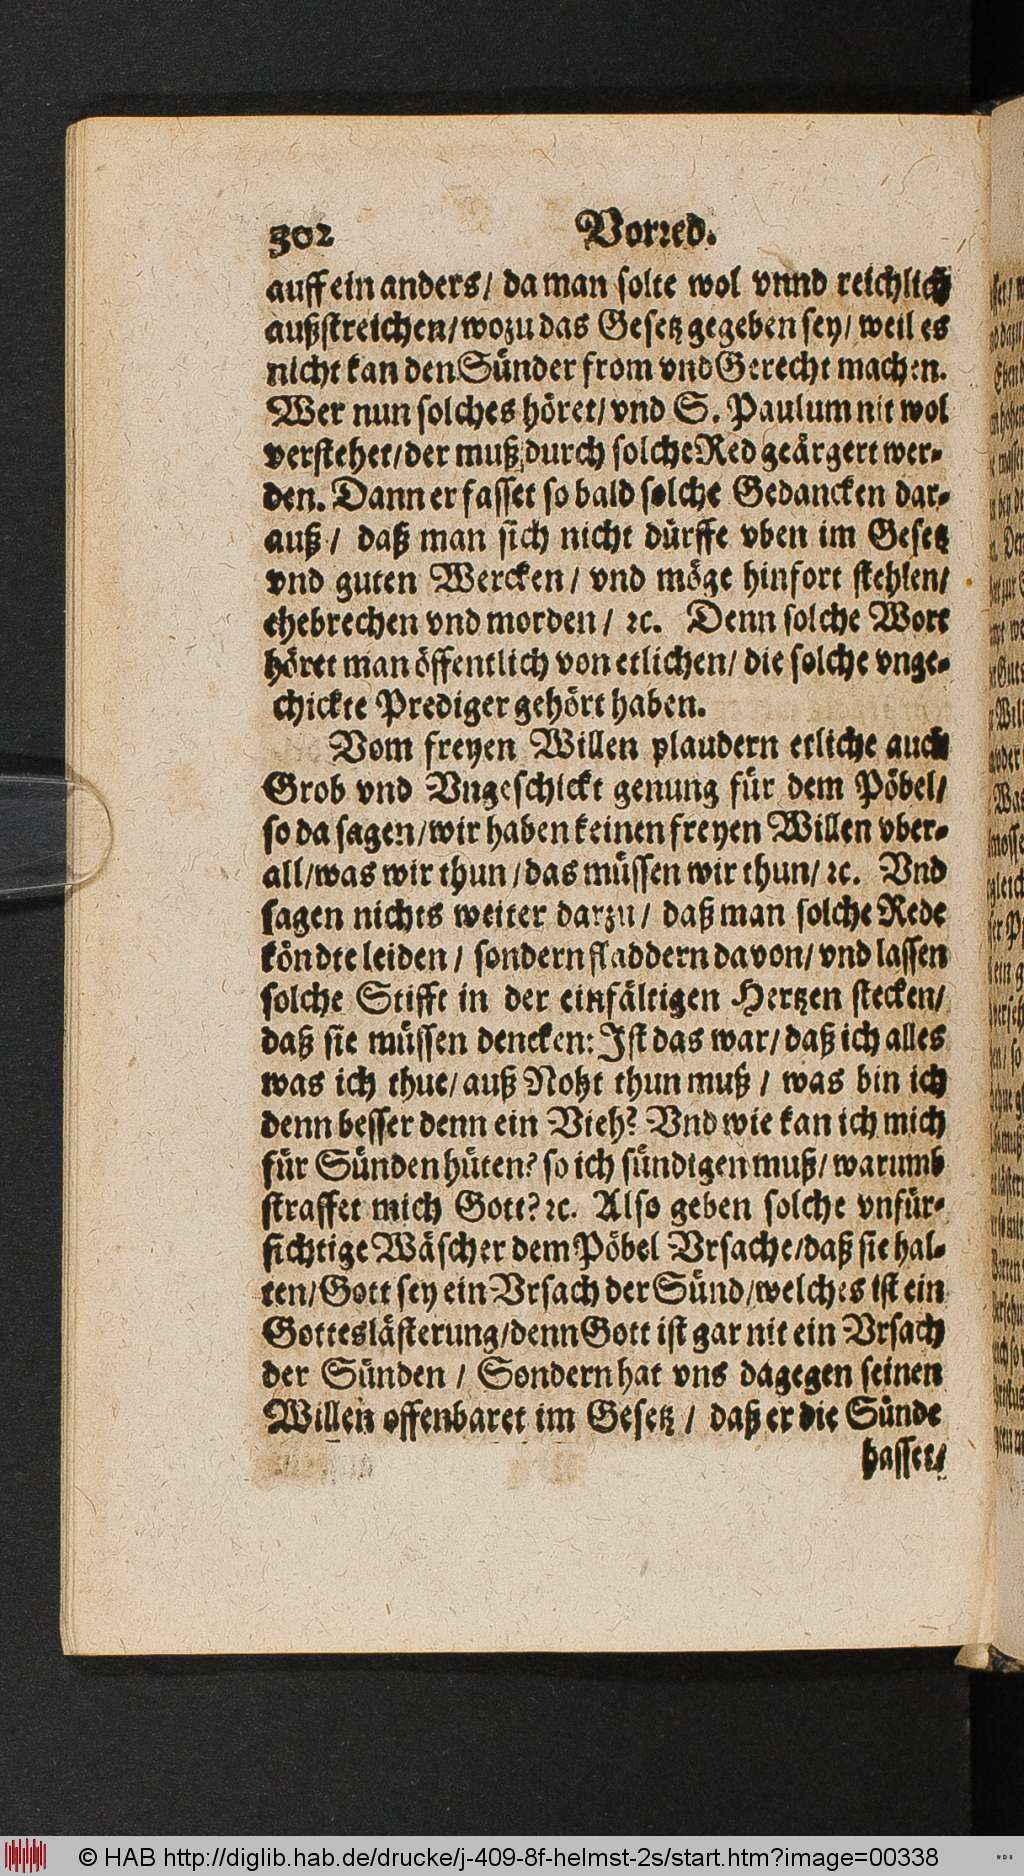 302 Vorred.
auff ein anders/ da man solte wol vnnd reichlich
außstreichen/ wozu das Gesetz gegeben sey/ weil es
nicht kan den Sünder from vnd Gerecht machen.
Wer nun solches höret/ vnd S. Paulum nit wol
verstehet/ der muß durch solche Red geärgert wer-
den. Dann er fasset so bald solche Gedancken dar-
auß/ daß man sich nicht dürffe vben im Gesetz
vnd guten Wercken/ vnd möge hinfort stehlen/
ehebrechen vnd morden/ ꝛc. Denn solche Wort
höret man öffentlich von etlichen/ die solche vnge-
chickte Prediger gehört haben.
Vom freyen Willen plaudern etliche auch
Grob vnd Vngeschickt genung für dem Pöbel/
so da sagen/ wir haben keinen freyen Willen vber-
all/ was wir thun/ das müssen wir thun/ ꝛc. Vnd
sagen nichts weiter darzu/ daß man solche Rede
köndte leiden/ sondern fladdern davon/ vnd lassen
solche Stifft in der einfältigen Hertzen stecken/
daß sie müssen dencken: Ist das war/ daß ich alles
was ich thue/ auß Noht thun muß/ was bin ich
denn besser denn ein Vieh? Vnd wie kan ich mich
für Sünden hüten? so ich sündigen muß/ warumb
straffet mich Gott? ꝛc. Also geben solche vnfür-
sichtige Wäscher dem Pöbel Vrsache/ daß sie hal-
ten/ Gott sey ein Vrsach der Sünd/ welches ist ein
Gotteslästerung/ denn Gott ist gar nit ein Vrsach
der Sünden/ Sondern hat vns dagegen seinen
Willen offenbaret im Gesetz/ daß er die Sünde
hasset/
© HAB http://diglib.hab.de/drucke/j-409-8f-helmst-2s/start.htm?image=00338